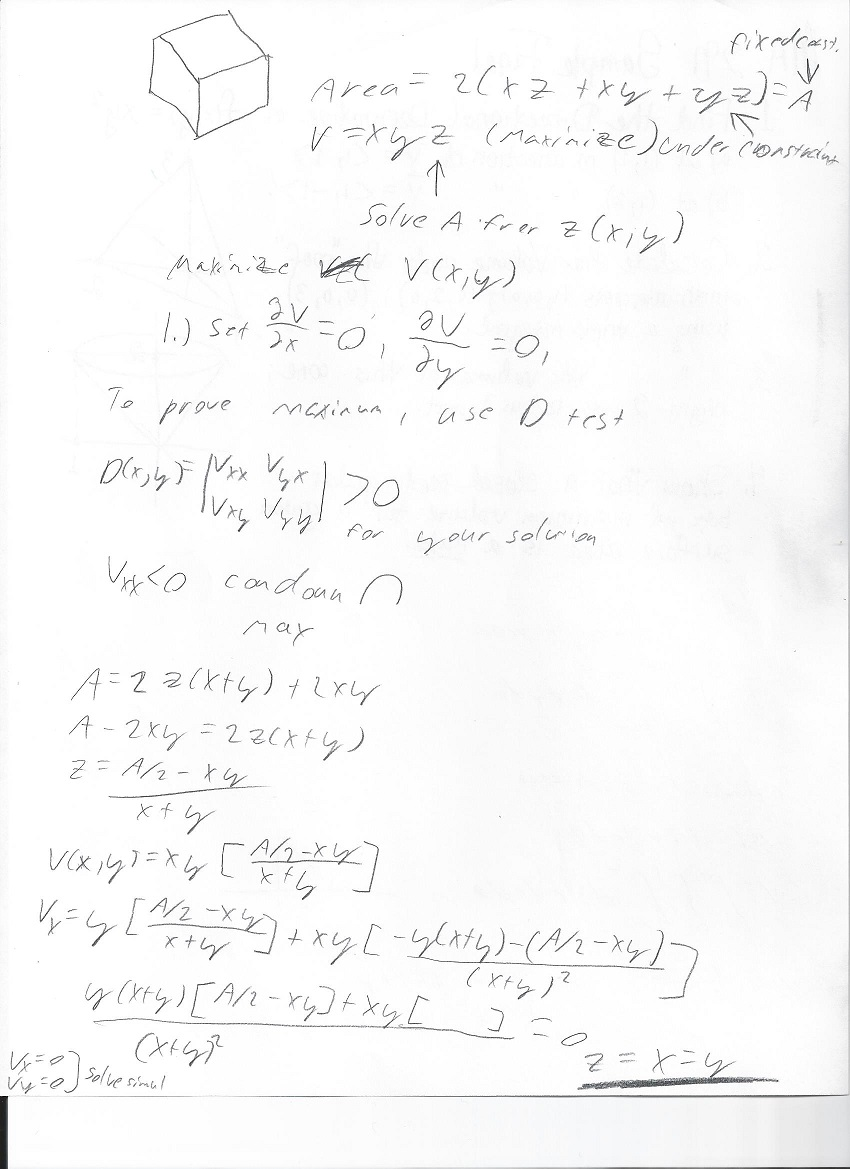 fixed const.
Area = 2(xz + xy + yz) = A
V = xyz (Maximize) under constraint
Solve A for z(x,y)
Maximize V(x,y)
1.) Set ∂V/∂x = 0, ∂V/∂y = 0,
To prove maximum, use D test
D(x,y) = |Vxx Vyx| > 0
|Vxy Vyy|
for your solution
Vxx < 0 con down ∩
max
A = 2 z(x+y) + 2xy
A - 2xy = 2z(x+y)
z = A/2 - xy
x + y
V(x,y) = xy [(A/2 - xy)/(x+y)]
Vx = y [(A/2 - xy)/(x+y)] + xy [(-y(x+y) - (A/2 - xy))/(x+y)²]
y(x+y)[A/2 - xy] + xy[ ] = 0
(x+y)²
Vx = 0
Vy = 0 ] solve simul
z = x = y